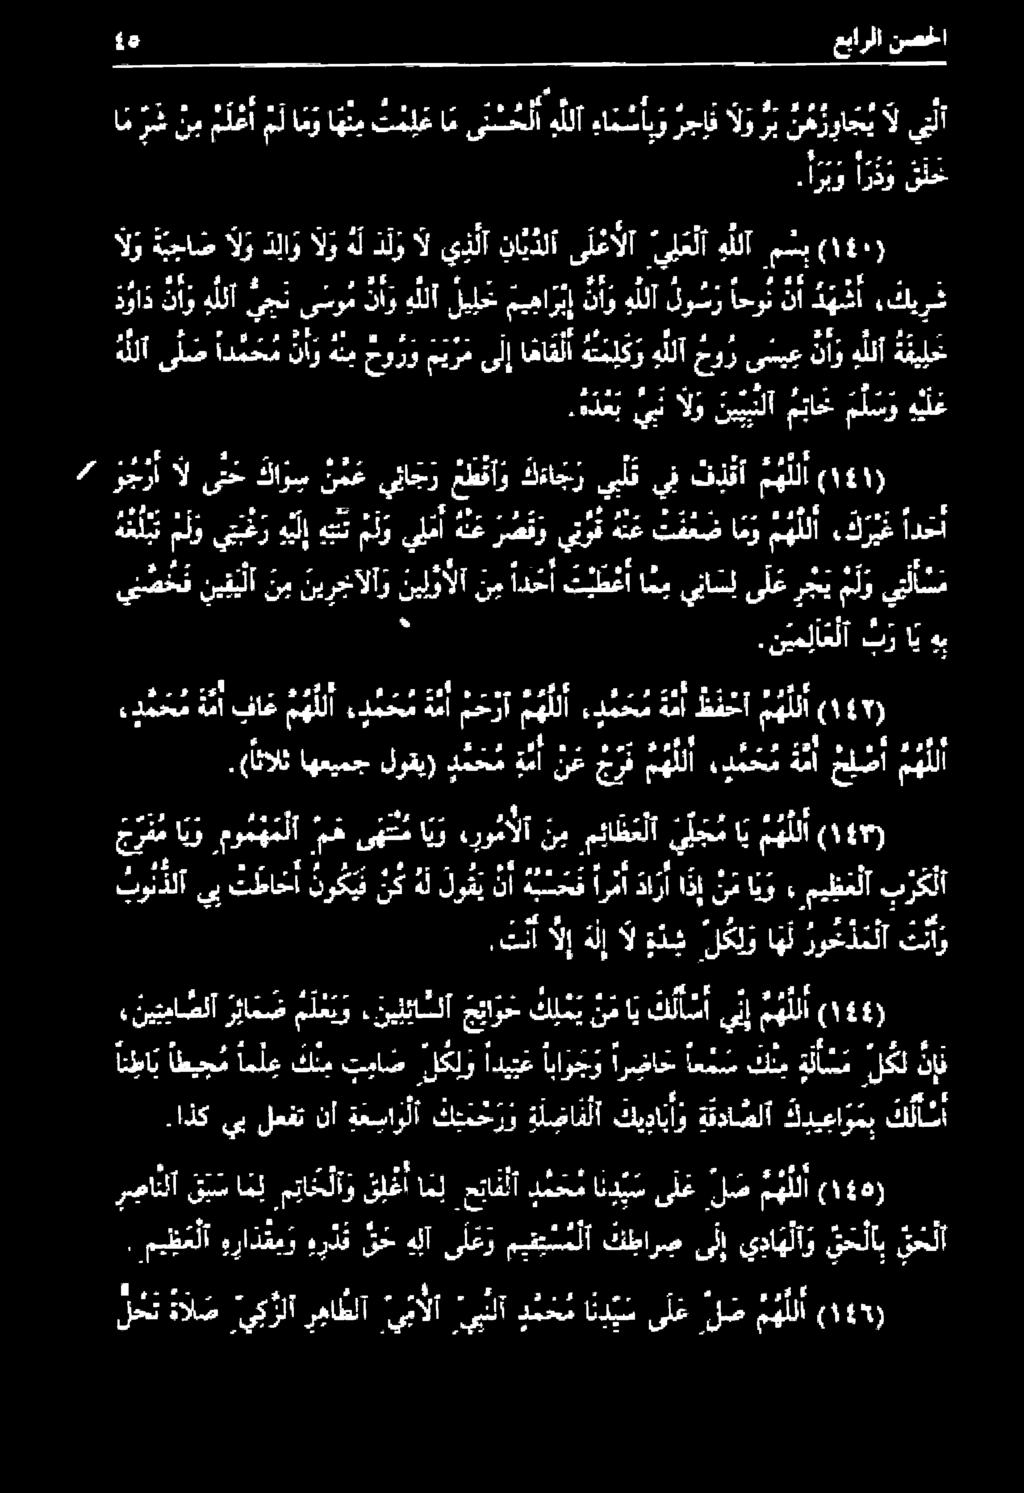 الحصن الرابع ٤٥
ٱلَّتِي لَا يُجَاوِزُهُنَّ بَرٌّ وَلَا فَاجِرٌ وَبِأَسْمَاءِ ٱللَّهِ ٱلْحُسْنَى مَا عَلِمْتُ مِنْهَا وَمَا لَمْ أَعْلَمْ مِنْ شَرِّ مَا
خَلَقَ وَذَرَأَ وَبَرَأَ.
(١٤٠) بِسْمِ ٱللَّهِ ٱلْعَلِيِّ ٱلْأَعْلَى ٱلدَّيَّانِ ٱلَّذِي لَا وَلَدَ لَهُ وَلَا وَالِدَ وَلَا صَاحِبَةَ وَلَا
شَرِيكَ، أَشْهَدُ أَنَّ نُوحاً رَسُولُ ٱللَّهِ وَأَنَّ إِبْرَاهِيمَ خَلِيلُ ٱللَّهِ وَأَنَّ مُوسَى نَجِيُّ ٱللَّهِ وَأَنَّ دَاوُدَ
خَلِيفَةُ ٱللَّهِ وَأَنَّ عِيسَى رُوحُ ٱللَّهِ وَكَلِمَتُهُ أَلْقَاهَا إِلَى مَرْيَمَ وَرُوحٌ مِنْهُ وَأَنَّ مُحَمَّداً صَلَّى ٱللَّهُ
عَلَيْهِ وَسَلَّمَ خَاتِمُ ٱلنَّبِيِّينَ وَلَا نَبِيَّ بَعْدَهُ.
(١٤١) أَللَّهُمَّ ٱقْذِفْ فِي قَلْبِي رَجَاءَكَ وَٱقْطَعْ رَجَائِي عَمَّنْ سِوَاكَ حَتَّى لَا أَرْجُوَ
أَحَداً غَيْرَكَ، أَللَّهُمَّ وَمَا ضَعُفَتْ عَنْهُ قُوَّتِي وَقَصُرَ عَنْهُ أَمَلِي وَلَمْ تَنْتَهِ إِلَيْهِ رَغْبَتِي وَلَمْ تَبْلُغْهُ
مَسْأَلَتِي وَلَمْ يَجْرِ عَلَى لِسَانِي مِمَّا أَعْطَيْتَ أَحَداً مِنَ ٱلْأَوَّلِينَ وَٱلْآخِرِينَ مِنَ ٱلْيَقِينِ فَخُصَّنِي
بِهِ يَا رَبَّ ٱلْعَالَمِينَ.
(١٤٢) أَللَّهُمَّ ٱحْفَظْ أُمَّةَ مُحَمَّدٍ، أَللَّهُمَّ ٱرْحَمْ أُمَّةَ مُحَمَّدٍ، أَللَّهُمَّ عَافِ أُمَّةَ مُحَمَّدٍ،
أَللَّهُمَّ أَصْلِحْ أُمَّةَ مُحَمَّدٍ، أَللَّهُمَّ فَرِّجْ عَنْ أُمَّةِ مُحَمَّدٍ (يقول جميعها ثلاثاً).
(١٤٣) أَللَّهُمَّ يَا مُجَلِّيَ ٱلْعَظَائِمِ مِنَ ٱلْأُمُورِ، وَيَا مُنْتَهَى هَمِّ ٱلْمَهْمُومِ وَيَا مُفَرِّجَ
ٱلْكَرْبِ ٱلْعَظِيمِ، وَيَا مَنْ إِذَا أَرَادَ أَمْراً فَحَسْبُهُ أَنْ يَقُولَ لَهُ كُنْ فَيَكُونُ أَحَاطَتْ بِي ٱلذُّنُوبُ
وَأَنْتَ ٱلْمَذْخُورُ لَهَا وَلِكُلِّ شِدَّةٍ لَا إِلَهَ إِلَّا أَنْتَ.
(١٤٤) أَللَّهُمَّ إِنِّي أَسْأَلُكَ يَا مَنْ يَمْلِكُ حَوَائِجَ ٱلسَّائِلِينَ، وَيَعْلَمُ ضَمَائِرَ ٱلصَّامِتِينَ،
فَإِنَّ لِكُلِّ مَسْأَلَةٍ مِنْكَ سَمْعاً حَاضِراً وَجَوَاباً عَتِيداً وَلِكُلِّ صَامِتٍ مِنْكَ عِلْماً مُحِيطاً بَاطِناً
أَسْأَلُكَ بِمَوَاعِيدِكَ ٱلصَّادِقَةِ وَأَيَادِيكَ ٱلْفَاضِلَةِ وَرَحْمَتِكَ ٱلْوَاسِعَةِ أن تفعل بي كذا.
(١٤٥) أَللَّهُمَّ صَلِّ عَلَى سَيِّدِنَا مُحَمَّدٍ ٱلْفَاتِحِ لِمَا أُغْلِقَ وَٱلْخَاتِمِ لِمَا سَبَقَ ٱلنَّاصِرِ
ٱلْحَقِّ بِٱلْحَقِّ وَٱلْهَادِي إِلَى صِرَاطِكَ ٱلْمُسْتَقِيمِ وَعَلَى آلِهِ حَقَّ قَدْرِهِ وَمِقْدَارِهِ ٱلْعَظِيمِ.
(١٤٦) أَللَّهُمَّ صَلِّ عَلَى سَيِّدِنَا مُحَمَّدٍ ٱلنَّبِيِّ ٱلْأُمِّيِّ ٱلطَّاهِرِ ٱلزَّكِيِّ صَلَاةً تُحَلُّ